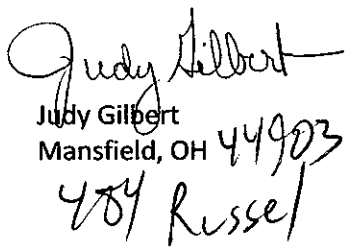 Judy Gilbert
Judy Gilbert
Mansfield, OH 44903
484 Russel